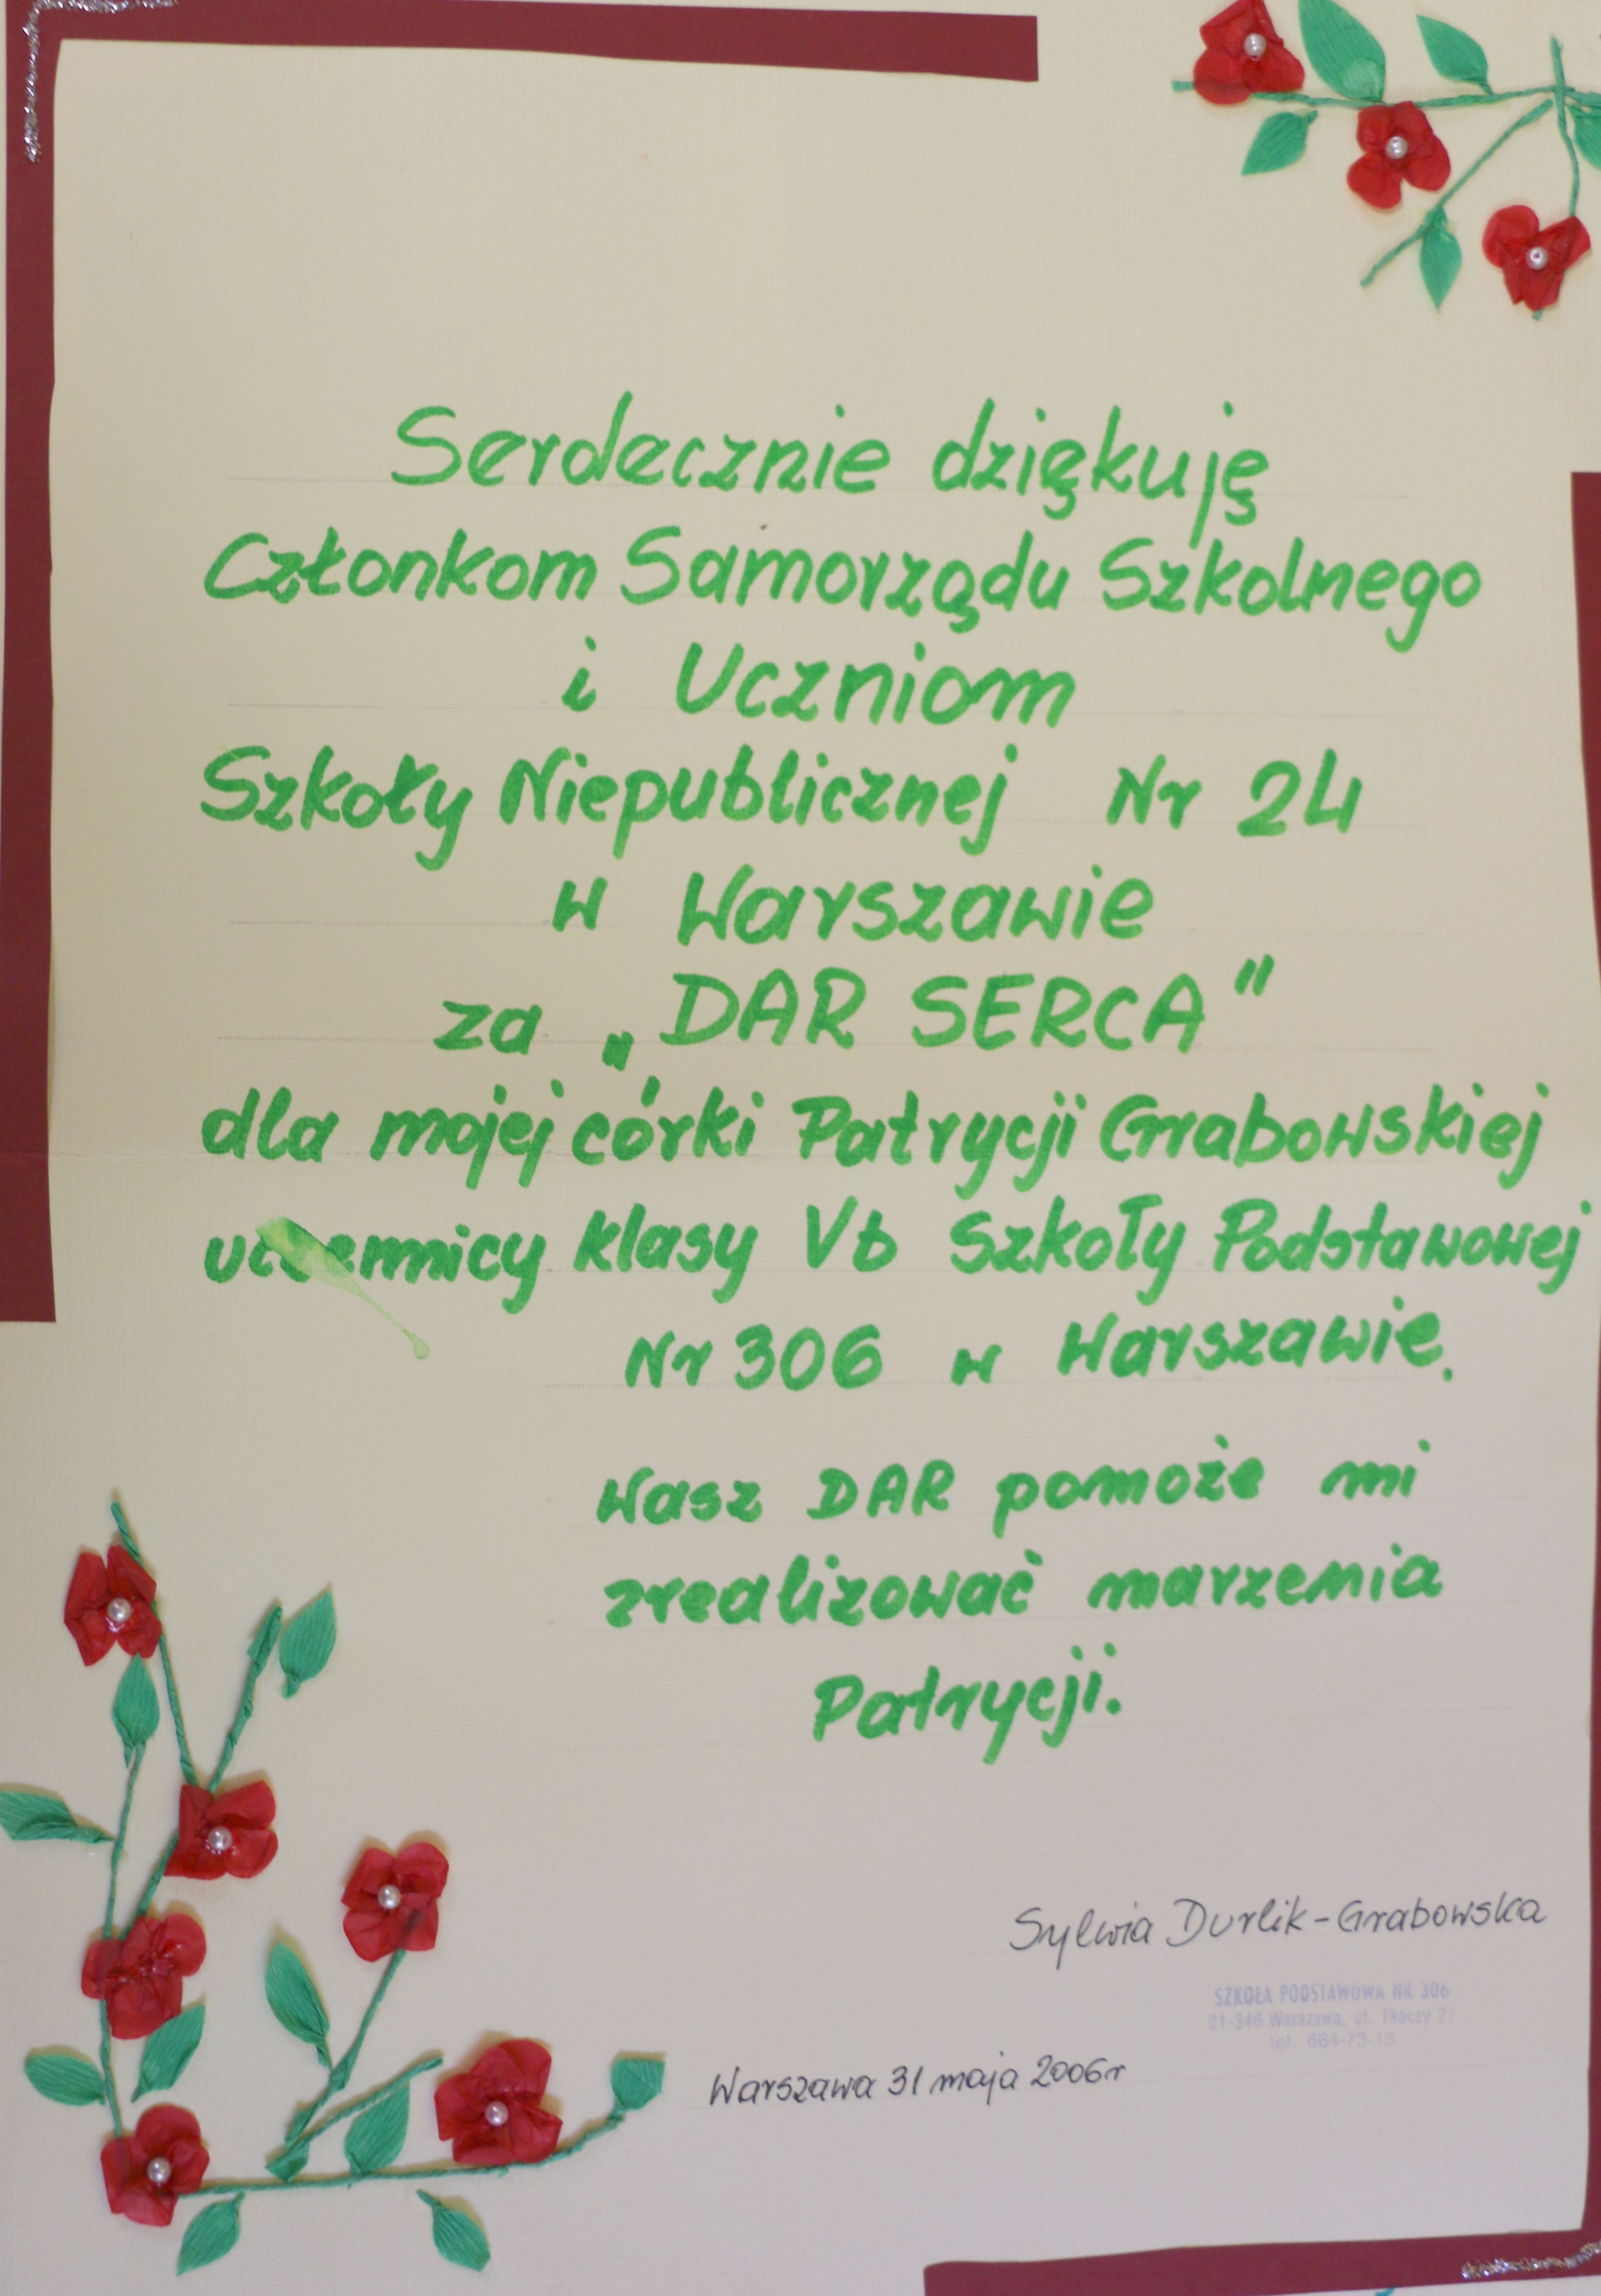 Serdecznie dziękuję
Członkom Samorządu Szkolnego
i Uczniom
Szkoły Niepublicznej Nr 24
w Warszawie
za „DAR SERCA”
dla mojej córki Patrycji Grabowskiej
uczennicy klasy Vb Szkoły Podstawowej
Nr 306 w Warszawie.
Wasz DAR pomoże mi
zrealizować marzenia
Patrycji.
Sylwia Durlik-Grabowska
SZKOŁA PODSTAWOWA NR 306
01-346 Warszawa, ul. Tkaczy 27
tel. 664-73-13
Warszawa 31 maja 2006r